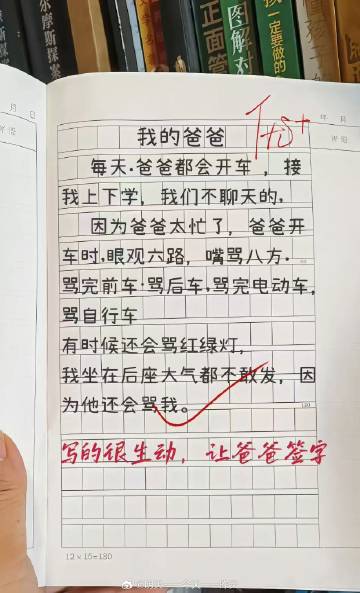 尔摩斯探案
正面管
图解
孩子一定要做的
月 日
评语
年 月
评语
我的爸爸
每天·爸爸都会开车，接
我上下学，我们不聊天的，
因为爸爸太忙了，爸爸开
车时·眼观六路，嘴骂八方·
骂完前车·骂后车，骂完电动车，
骂自行车
有时候还会骂红绿灯，
我坐在后座大气都不敢发，因
为他还会骂我。
写的很生动，让爸爸签字
12×15=180